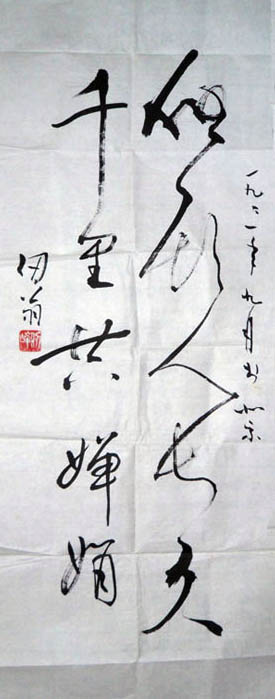 一九 一年九月于北京
但愿人长久
千里共婵娟
翁